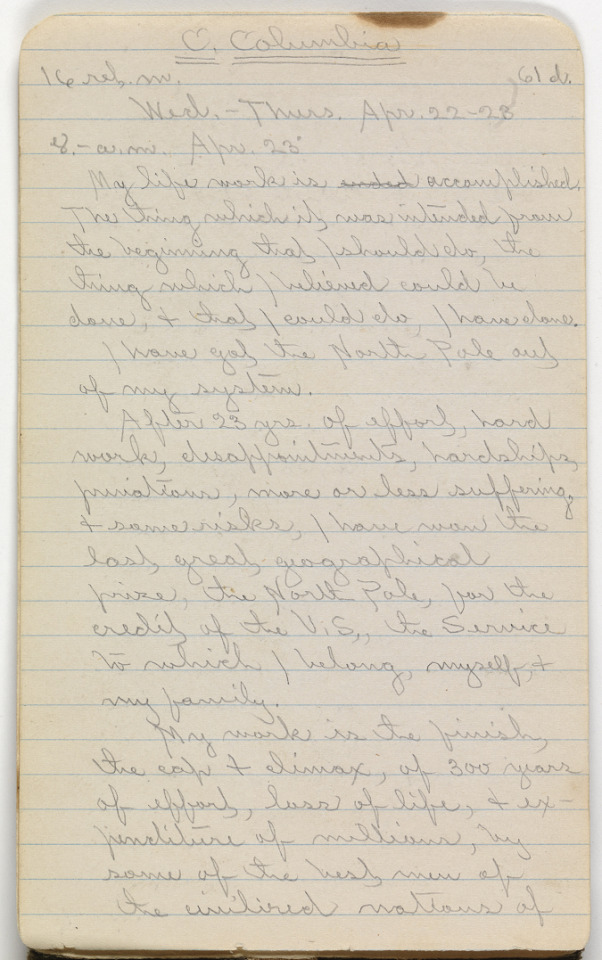 C. Columbia
16 reb. m. 61 d.
Wed. - Thurs. Apr. 22-23
8. - a.m. Apr. 23
My life work is ended accomplished.
The thing which it was intended from
the beginning that I should do, the
thing which I believed could be
done, & that I could do, I have done.
I have got the North Pole out
of my system.
After 23 yrs. of effort, hard
work, disappointments, hardships,
privations, more or less suffering,
& some risks, I have won the
last great geographical
prize, the North Pole, for the
credit of the U.S., the Service
to which I belong, myself, &
my family.
My work is the finish,
the cap & climax, of 300 years
of effort, loss of life, & ex-
penditure of millions, by
some of the best men of
the civilized nations of